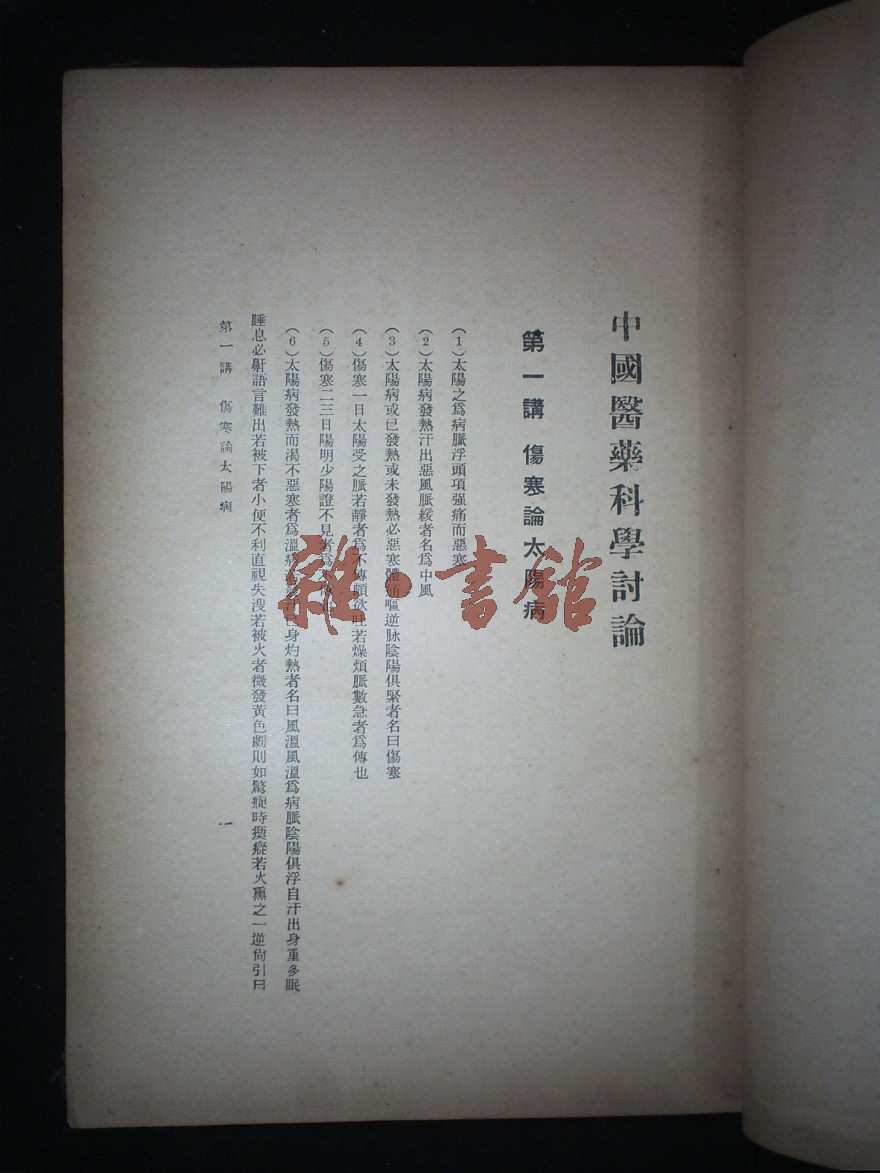 中國醫藥科學討論
第一講 傷寒論太陽病
(1)太陽之爲病脈浮頭項强痛而惡寒
(2)太陽病發熱汗出惡風脈緩者名爲中風
(3)太陽病或已發熱或未發熱必惡寒體痛嘔逆脉陰陽俱緊者名曰傷寒
(4)傷寒一日太陽受之脈若靜者爲不傳頗欲吐若燥煩脈數急者爲傳也
(5)傷寒二三日陽明少陽證不見者爲
(6)太陽病發熱而渴不惡寒者爲溫病身灼熱者名曰風溫風溫爲病脈陰陽俱浮自汗出身重多眠
睡息必鼾語言難出若被下者小便不利直視失溲若被火者微發黃色劇則如驚癇時瘈瘲若火熏之一逆尙引日
第一講 傷寒論太陽病
一
雜·書館